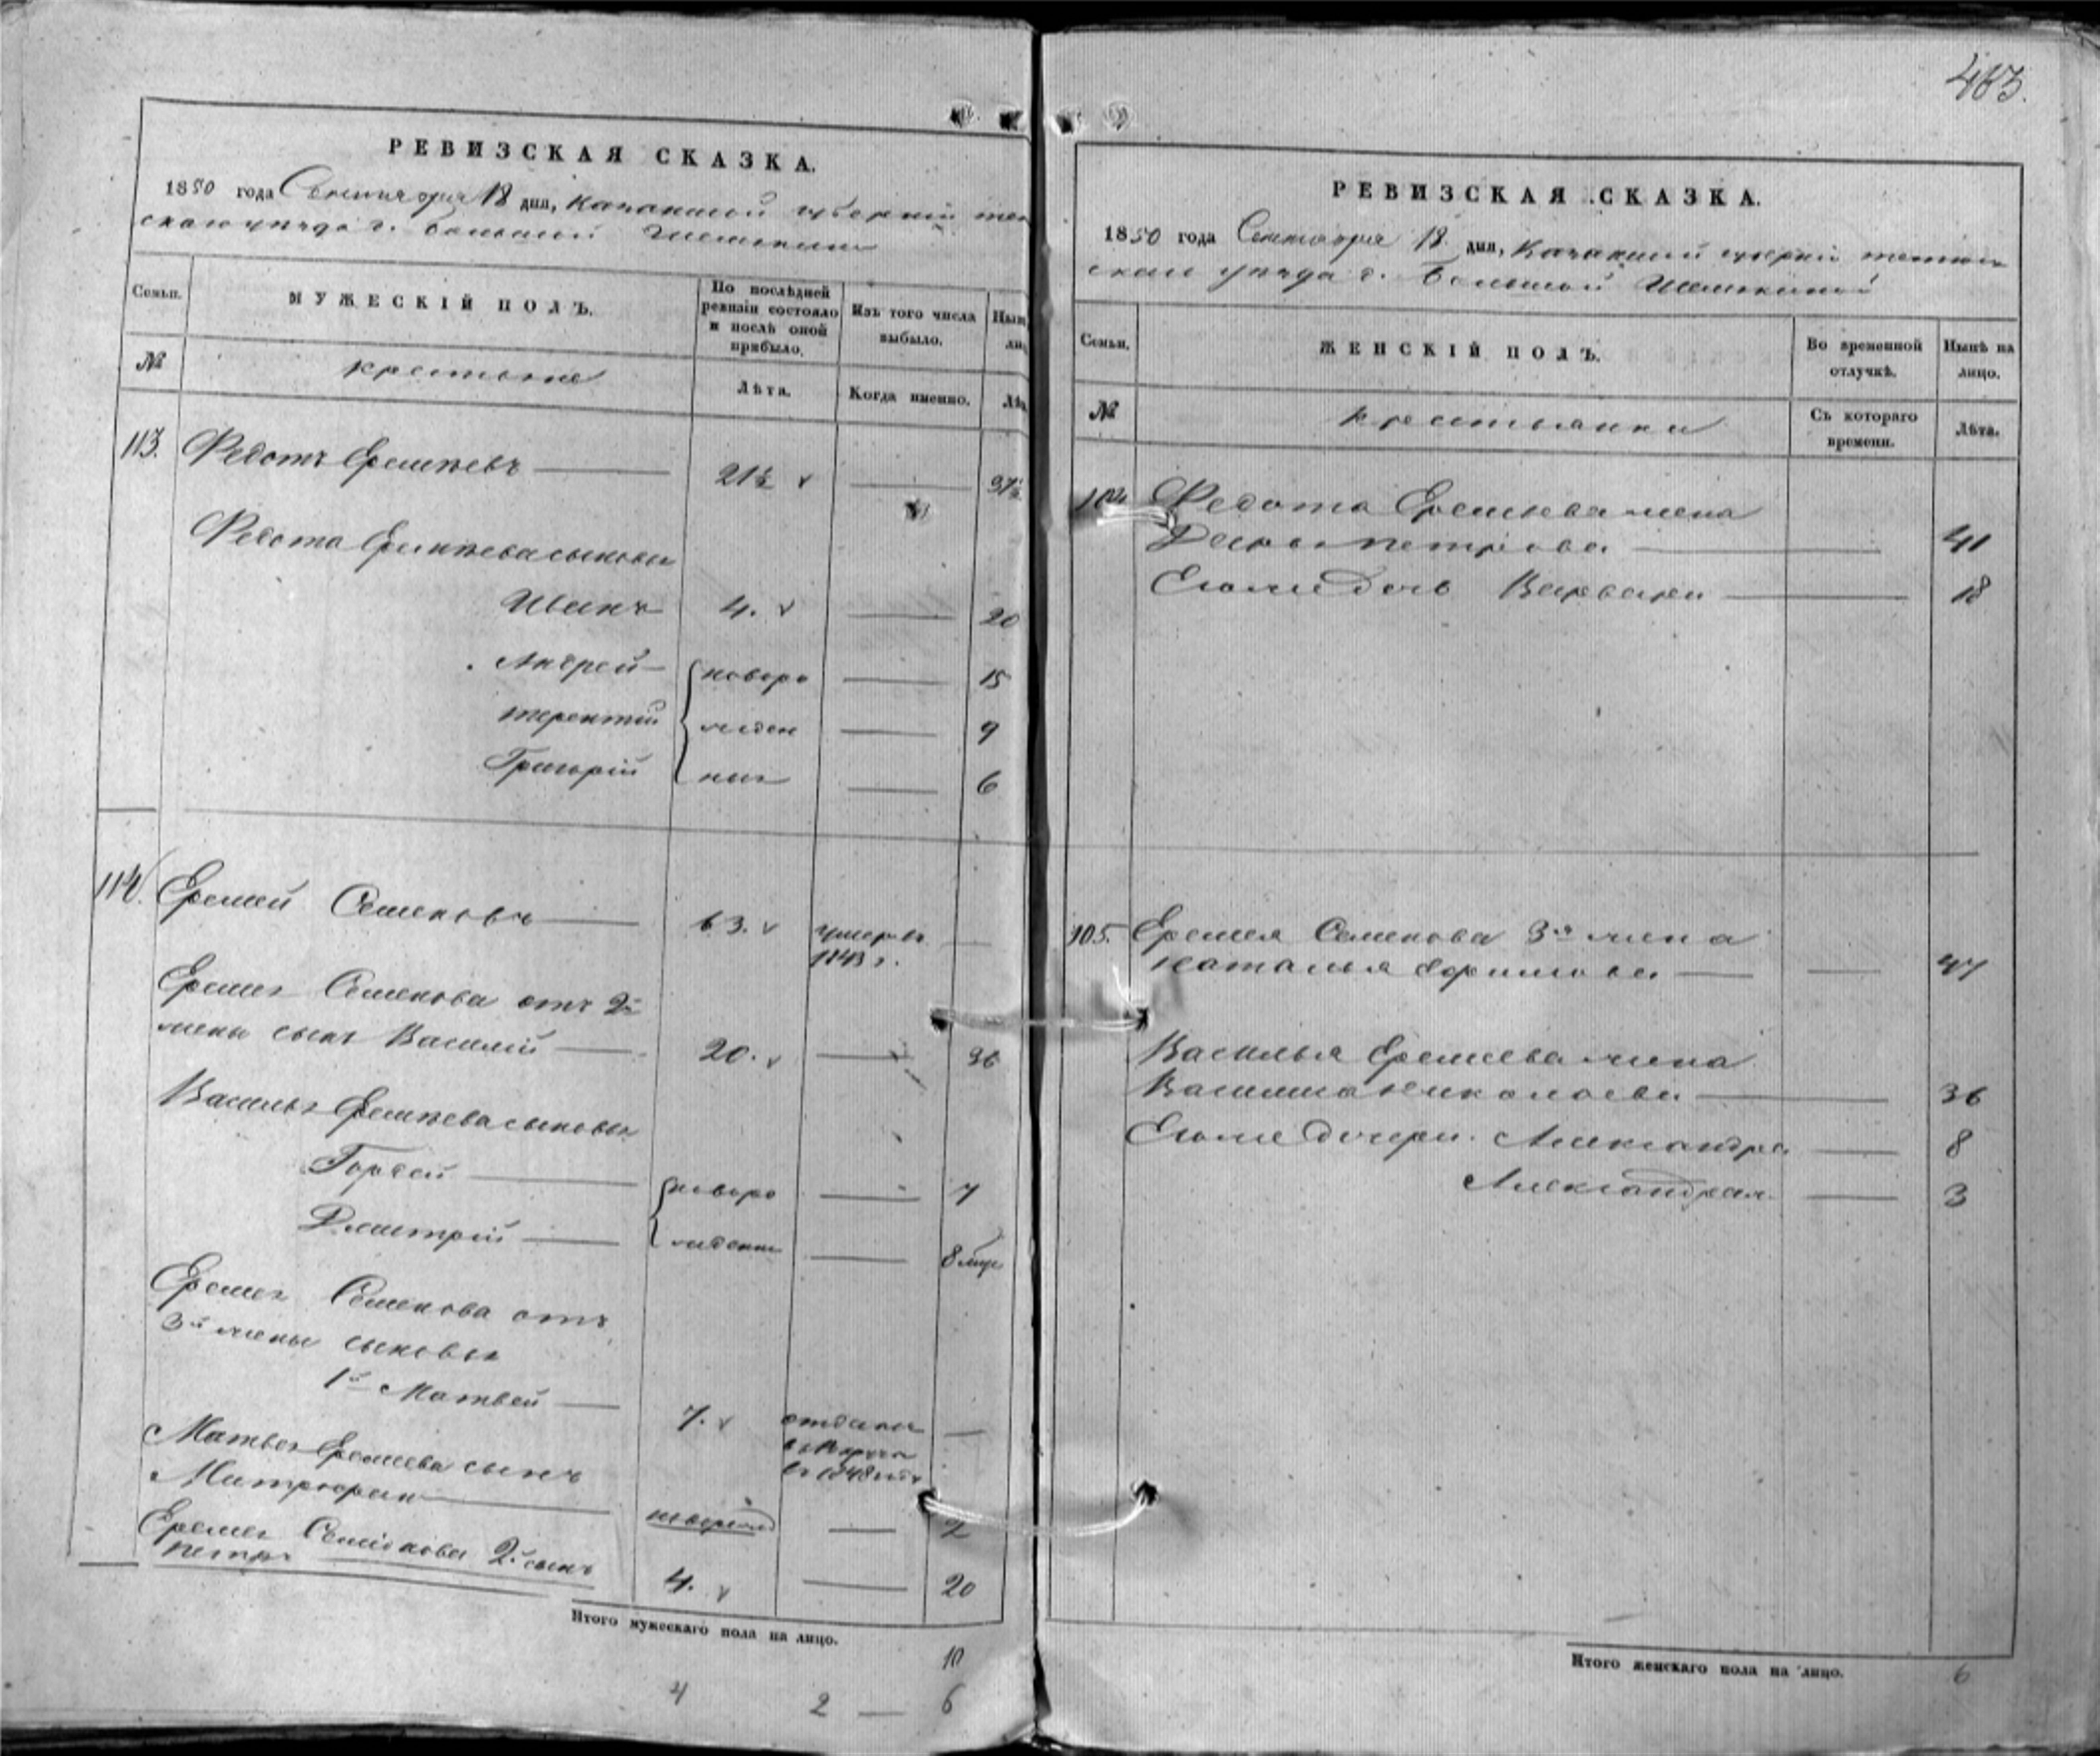 463.
РЕВИЗСКАЯ СКАЗКА.
1850 года Сентября 18 дня, Казанской губернiи тет
скаго уѣзда д. Большой Шемякиной
Семьи.
МУЖЕСКIЙ ПОЛЪ.
По послѣдней ревизiи состояло и послѣ оной прибыло.
Изъ того числа выбыло.
Нын
ли
№
крестьяне
Лѣта.
Когда именно.
Лѣ
113. Федотъ Еремѣевъ 21½ 37½
Федота Еремѣева сыновья
Иванъ 4. 20
Андрей новоро 15
терентiй жден 9
Григорiй ныя 6
114. Еремей Семеновъ 63. умеръ въ
1843 г.
Еремея Семенова отъ 2й
жены сынъ Василiй 20. 36
Василья Еремѣева сыновья
Гордей новоро 7
Дмитрiй жденны 8 мѣс
Еремея Семенова отъ
3й жены сыновья
1й Матвей 7. отданъ
въ 1848 году
Матвея Еремеева сынъ
Митрофан новорожд 2
Еремея Семенова 2й сынъ
петръ 4. 20
Итого мужескаго пола на лицо. 10
4 2 — 6
РЕВИЗСКАЯ СКАЗКА.
1850 года Сентября 18 дня, Казанской губернiи тетюш
скаго уѣзда д. Большой Шемякиной
Семьи.
ЖЕНСКIЙ ПОЛЪ.
Во временной отлучкѣ.
Нынѣ на лицо.
№
крестьянки
Съ котораго времени.
Лѣта.
Федота Еремеева жена
Дарья петрова 41
Его же дочь Варвара 18
105. Еремея Семенова 3я жена
Наталья Ефимова 47
Василья Еремеева жена
Василиса Николаева 36
Его же дочери. Александра 8
Александра 3
Итого женскаго пола на лицо. 6